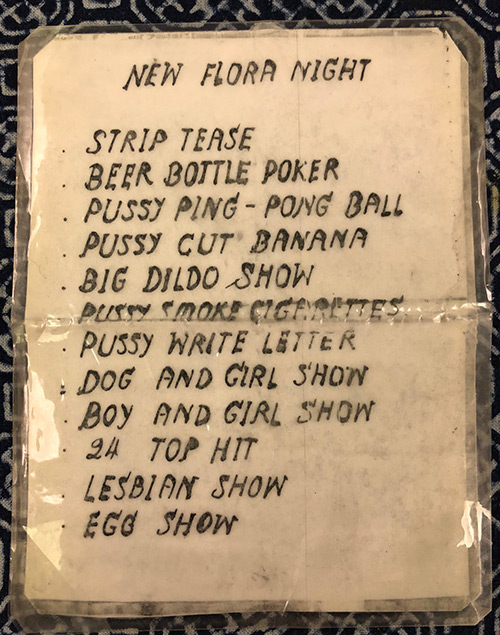 NEW FLORA NIGHT
. STRIP TEASE
. BEER BOTTLE POKER
. PUSSY PING-PONG BALL
. PUSSY CUT BANANA
. BIG DILDO SHOW
. PUSSY SMOKE CIGARETTES
. PUSSY WRITE LETTER
. DOG AND GIRL SHOW
. BOY AND GIRL SHOW
. 24 TOP HIT
. LESBIAN SHOW
. EGG SHOW